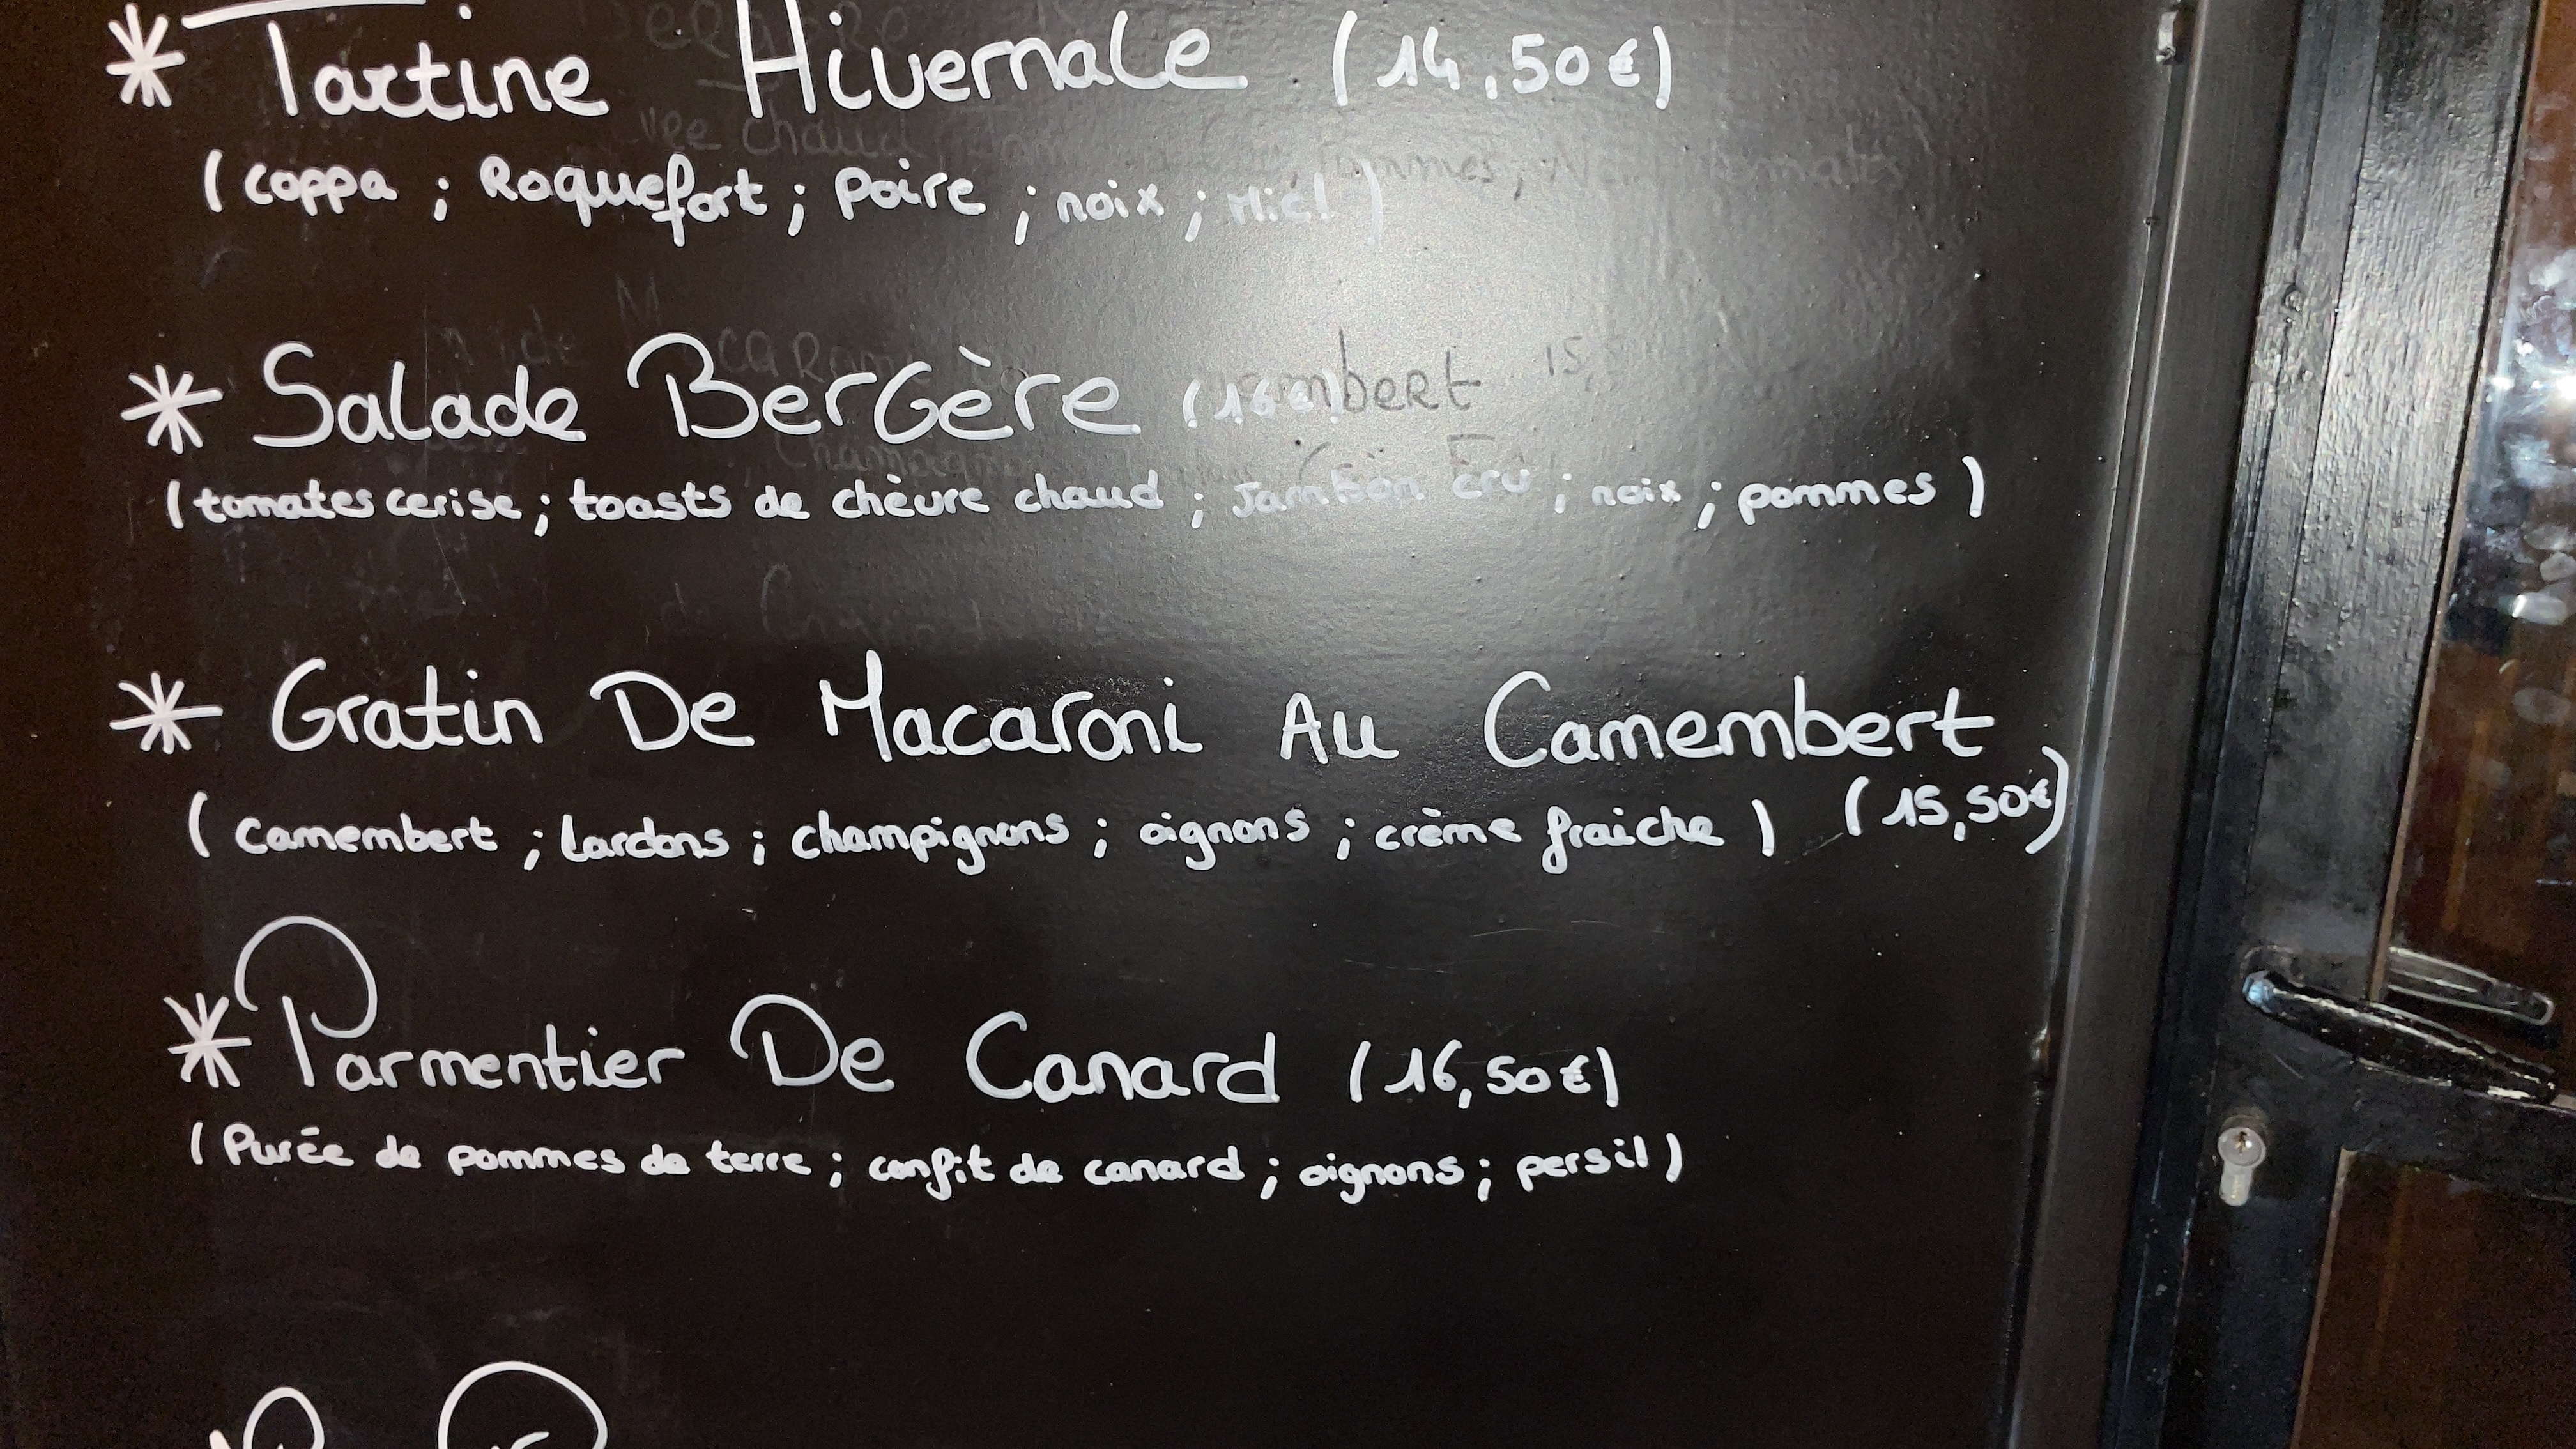 * Tartine Hivernale (14,50€)
(coppa ; Roquefort ; poire ; noix ; Miel)
* Salade Bergère (16€)
(tomates cerise ; toasts de chèvre chaud ; Jambon cru ; noix ; pommes)
* Gratin De Macaroni Au Camembert
(camembert ; lardons ; champignons ; oignons ; crème fraiche) (15,50€)
* Parmentier De Canard (16,50€)
(Purée de pommes de terre ; confit de canard ; oignons ; persil)